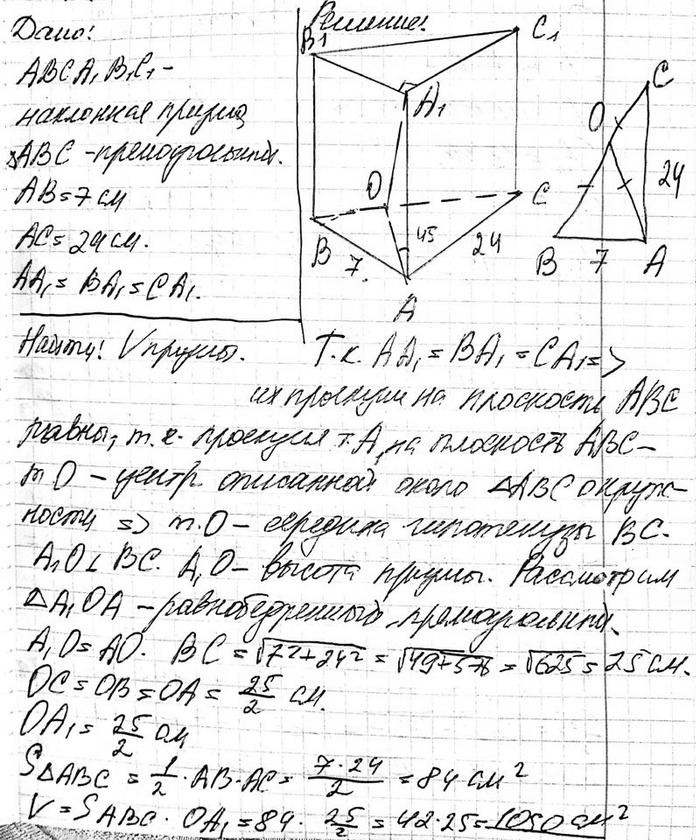 Дано:
ABCA₁B₁C₁ –
наклонная призма
△ABC – прямоугольный.
AB = 7 см
AC = 24 см.
AA₁ = BA₁ = CA₁.
Найти: V призмы.
Решение:
B₁
C₁
A₁
O
C
45
24
B
7.
A
C
O
24
B
7
A
Т.к. AA₁ = BA₁ = CA₁ =>
их проекции на плоскость ABC
равны, т.к. проекция т. A₁ на плоскость ABC –
т O – центр описанной около △ABC окруж-
ности => т. O – середина гипотенузы BC.
A₁O ⊥ BC. A₁O – высота призмы. Рассмотрим
△A₁OA – равнобедренный, прямоугольный.
A₁O = AO. BC = √7²+24² = √49+576 = √625 = 25 см.
OC = OB = OA = 25/2 см.
OA₁ = 25/2 см
S△ABC = 1/2 · AB · AC = 7·24/2 = 84 см²
V = S ABC · OA₁ = 84 · 25/2 = 42·25 = 1050 см²